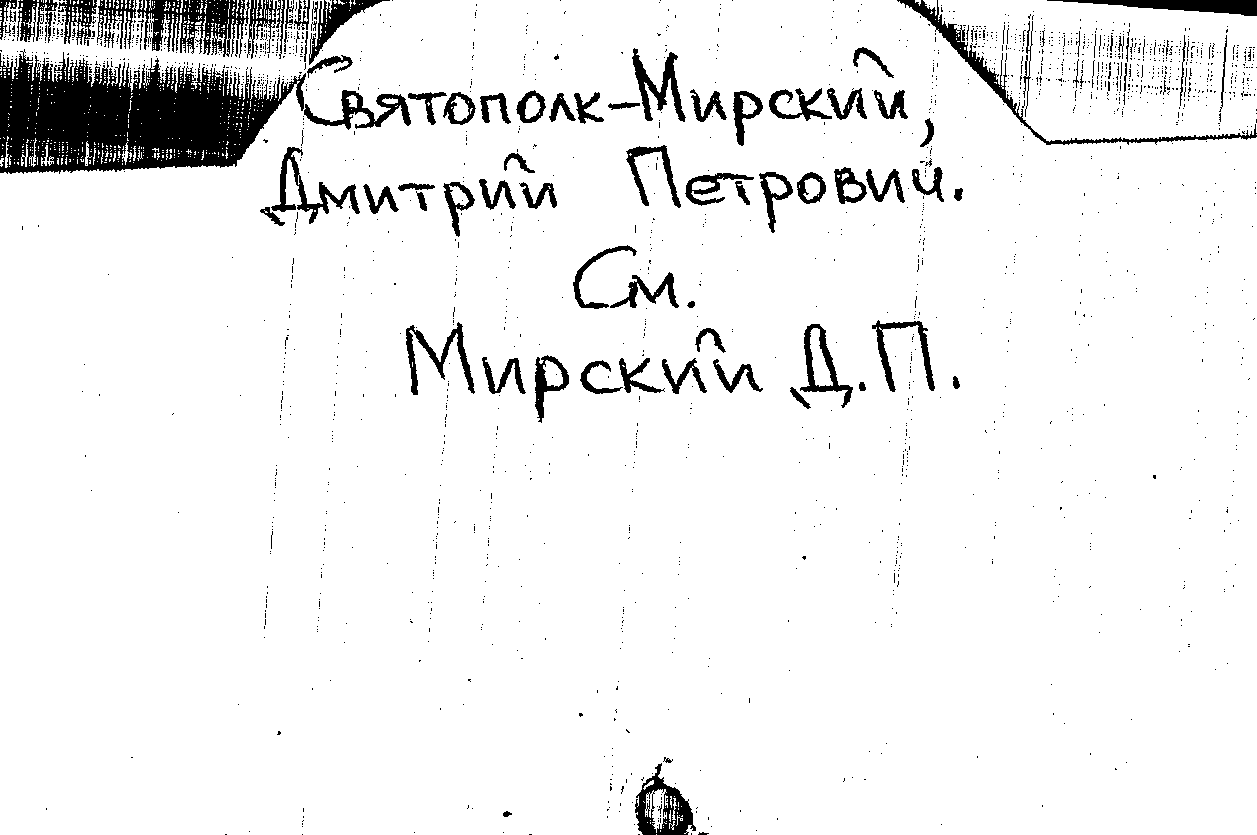 Святополк-Мирский,
Дмитрий Петрович.
См.
Мирский Д.П.